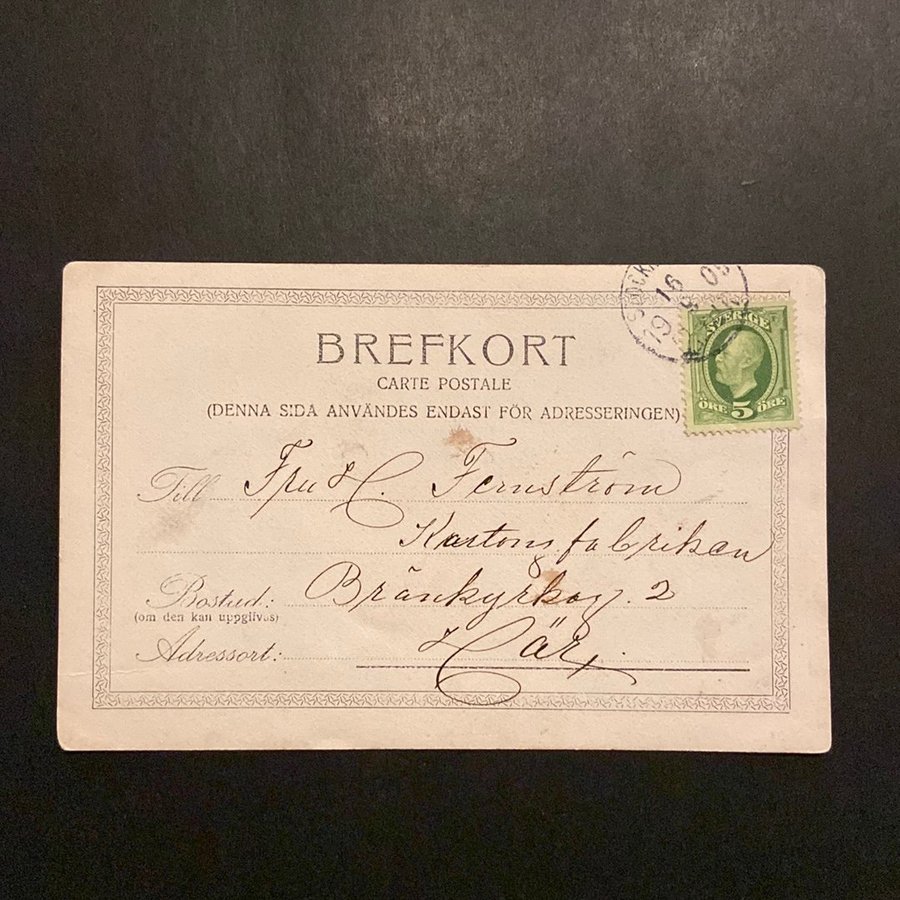 BREFKORT
CARTE POSTALE
(DENNA SIDA ANVÄNDES ENDAST FÖR ADRESSERINGEN)
SVERIGE
ÖRE 5 ÖRE
Till Fru H. Fernström
Kartongfabriken
Bostad: Bränkyrkag. 2
(om den kan uppgifvas)
Adressort: Här.